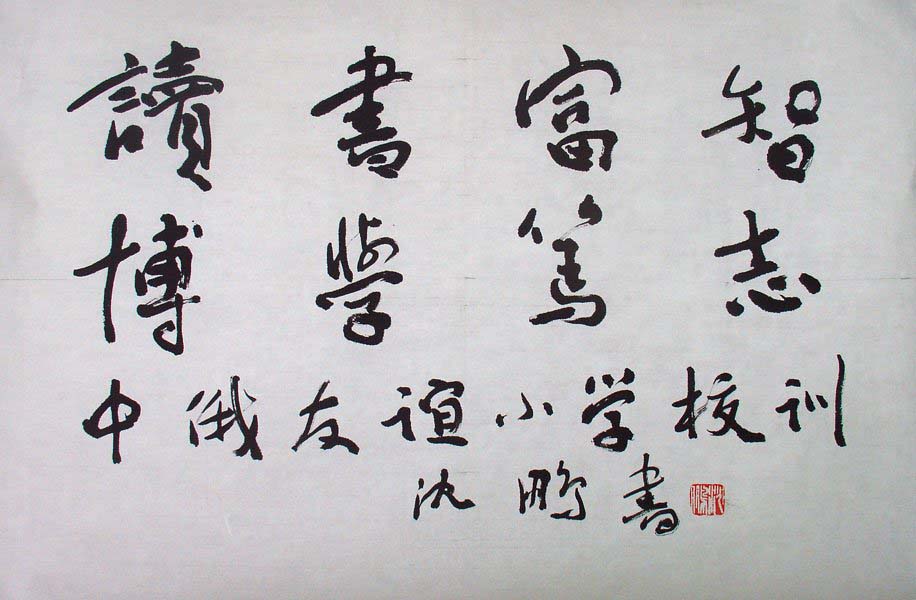 讀書富智
博學篤志
中俄友谊小学校训
沈鹏書